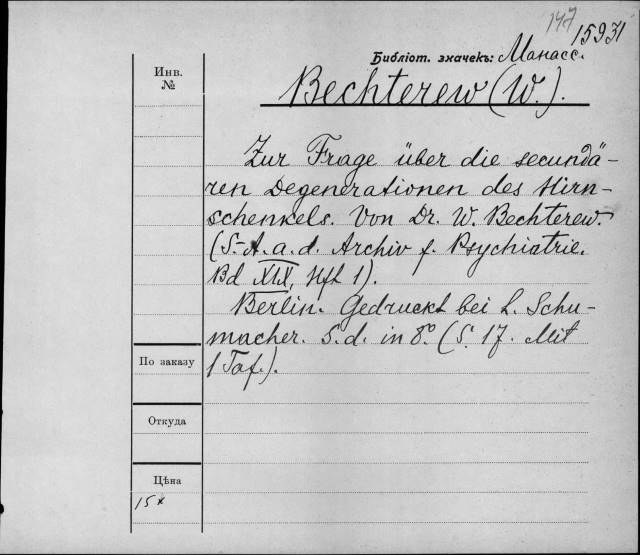 147
15931
Библіот. значекъ: Манасс.
Инв.
№
Bechterew (W.).
Zur Frage über die secundä-
ren Degenerationen des Hirn-
schenkels. Von Dr. W. Bechterew.
(S.-A. a. d. Archiv f. Psychiatrie.
Bd XIX, Hft 1).
Berlin. Gedruckt bei L. Schu-
macher. S. d. in 8º. (S. 17. Mit
1 Taf.).
По заказу
Откуда
Цѣна
15 к